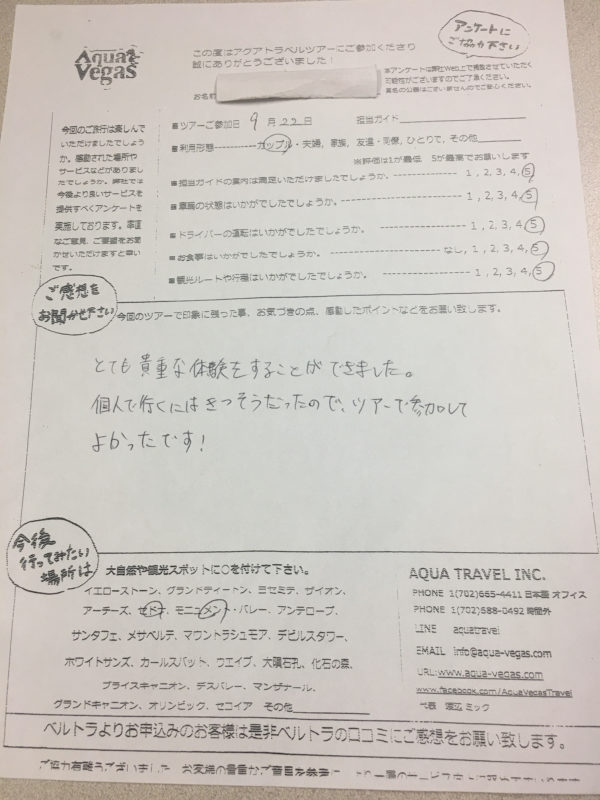 Aqua Vegas
この度はアクアトラベルツアーにご参加くださり
誠にありがとうございました！
アンケートに
ご協力下さい
本アンケートは弊社Web上で掲載させていただく
可能性がございますのでご了承ください。
実名の公表はございませんのでご安心ください。
お名前
今回のご旅行は楽しんで
いただけましたでしょう
か。感動された場所や
サービスなどがありまし
たでしょうか。弊社では
今後より良いサービスを
提供すべくアンケートを
実施しております。率直
なご意見、ご要望をお聞
かせいただけますと幸い
です。
■ツアーご参加日 9 月 22 日 担当ガイド
■利用形態----------カップル・夫婦, 家族, 友達・同僚, ひとりで, その他
※評価は1が最低 5が最高でお願いします
■担当ガイドの案内は満足いただけましたでしょうか。 ---------- 1, 2, 3, 4, 5
■車両の状態はいかがでしたでしょうか。 ---------- 1, 2, 3, 4, 5
■ドライバーの運転はいかがでしたでしょうか。 ---------- 1, 2, 3, 4, 5
■お食事はいかがでしたでしょうか。 ---------- なし, 1, 2, 3, 4, 5
■観光ルートや行程はいかがでしたでしょうか。 ---------- 1, 2, 3, 4, 5
ご感想を
お聞かせ下さい
今回のツアーで印象に残った事、お気づきの点、感動したポイントなどをお願い致します。
とても貴重な体験をすることができました。
個人で行くにはきつそうだったので、ツアーで参加して
よかったです！
今後
行ってみたい
場所は
大自然や観光スポットに○を付けて下さい。
イエローストーン、グランドティートン、ヨセミテ、ザイオン、
アーチーズ、セドナ、モニュメント・バレー、アンテロープ、
サンタフェ、メサベルデ、マウントラシュモア、デビルスタワー、
ホワイトサンズ、カールスバット、ウエイブ、大隕石孔、化石の森、
ブライスキャニオン、デスバレー、マンザナール、
グランドキャニオン、オリンピック、セコイア その他
AQUA TRAVEL INC.
PHONE 1(702)665-4411 日本語 オフィス
PHONE 1(702)588-0492 時間外
LINE aquatravel
EMAIL info@aqua-vegas.com
URL:www.aqua-vegas.com
www.facebook.com/AquaVegasTravel
代表 ミック
ベルトラよりお申込みのお客様は是非ベルトラの口コミにご感想をお願い致します。
ご協力有難うございました